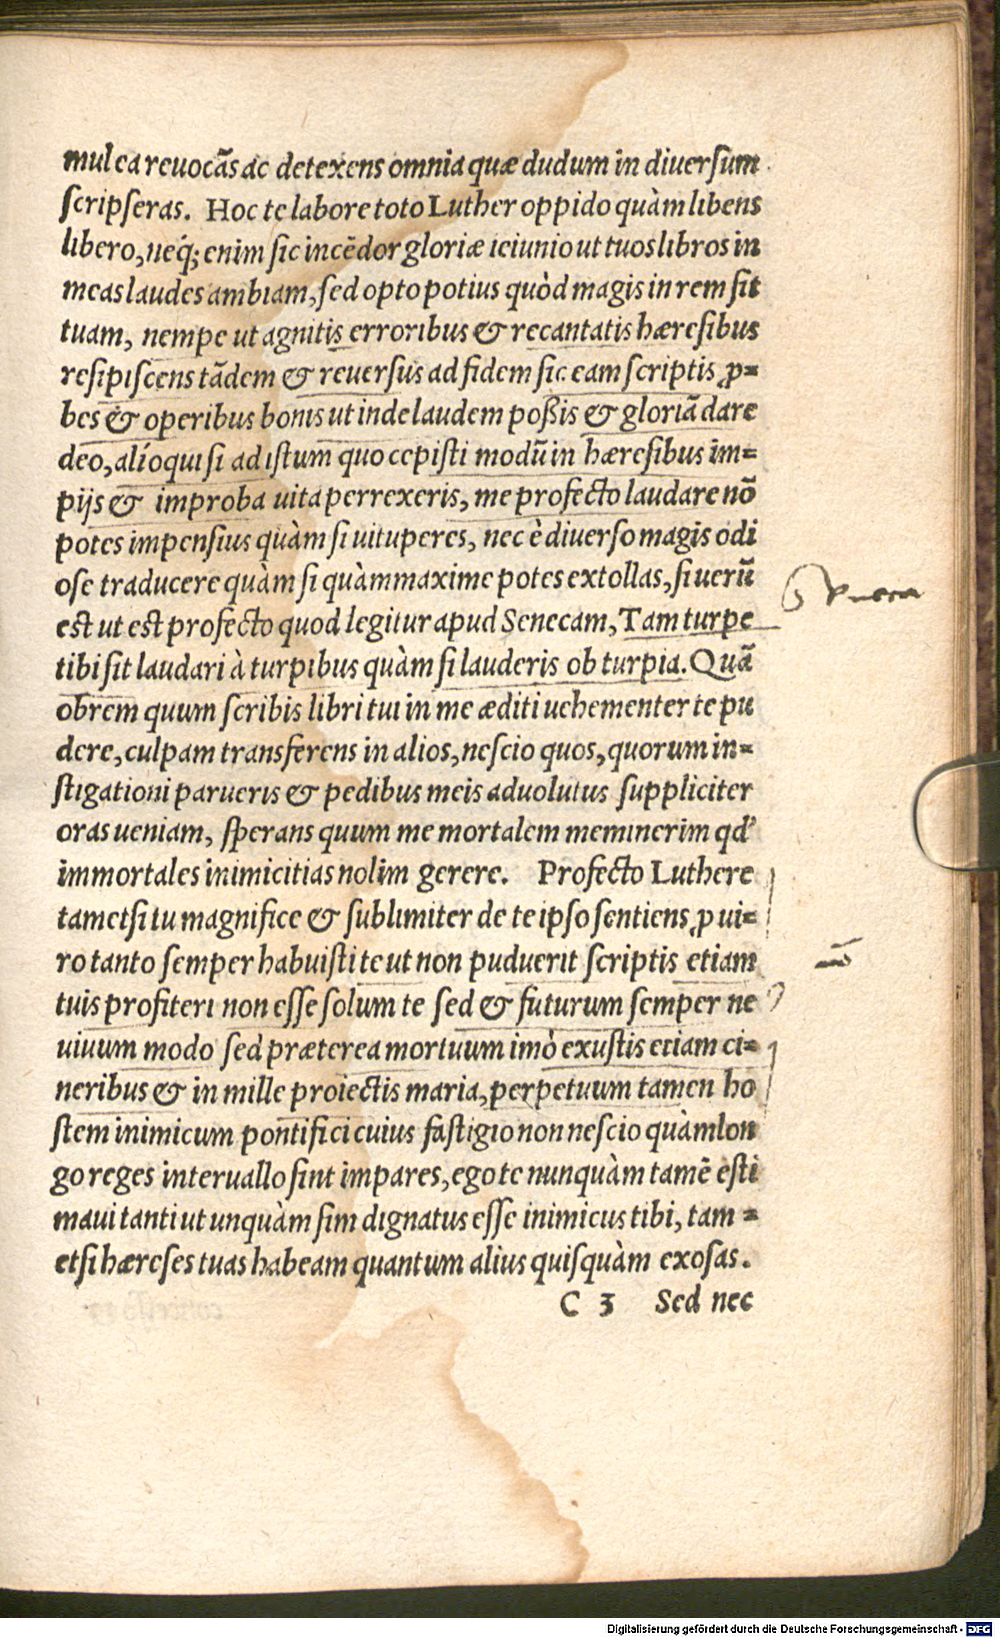 mul ea reuocãs ac detexens omnia quæ dudum in diuersum
scripseras. Hoc te labore toto Luther oppido quàm libens
libero, neq́; enim sic incẽdor gloriæ ieiunio ut tuos libros in
meas laudes ambiam, sed opto potius quòd magis in rem sit
tuam, nempe ut agnitis erroribus & recantatis hæresibus
resipiscens tãdem & reuersus ad fidem sic eam scriptis ꝓ=
bes & operibus bonis ut inde laudem poßis & gloriã dare
deo, alíoqui si ad istum quo cepisti modũ in hæresibus im=
pijs & improba uita perrexeris, me profecto laudare nõ
potes impensius quàm si uituperes, nec è diuerso magis odi
ose traducere quàm si quàm maxime potes extollas, si uerũ
est ut est profecto quod legitur apud Senecam, Tam turpe
tibi sit laudari à turpibus quàm si lauderis ob turpia. Quã
obrem quum scribis libri tui in me æditi uehementer te pu
dere, culpam transferens in alios, nescio quos, quorum in=
stigationi parueris & pedibus meis aduolutus suppliciter
oras ueniam, sperans quum me mortalem meminerim qd'
immortales inimicitias nolim gerere. Profecto Luthere
tametsi tu magnifice & sublimiter de te ipso sentiens ꝓ ui=
ro tanto semper habuisti te ut non puduerit scriptis etiam
tuis profiteri non esse solum te sed & futurum semper ne
uiuum modo sed præterea mortuum imò exustis etiam ci=
neribus & in mille proiectis maria, perpetuum tamen ho
stem inimicum pontifici cuius fastigio non nescio quàm lon
go reges interuallo sint impares, ego te nunquàm tamẽ esti
maui tanti ut unquàm sim dignatus esse inimicus tibi, tam=
etsi hæreses tuas habeam quantum alius quisquàm exosas.
C 3 Sed nec
Digitalisierung gefördert durch die Deutsche Forschungsgemeinschaft - DFG